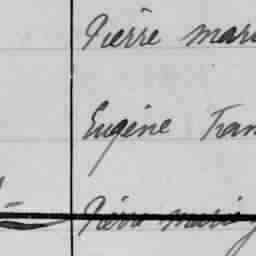 Pierre mari
Eugène Fran
Pierre marie